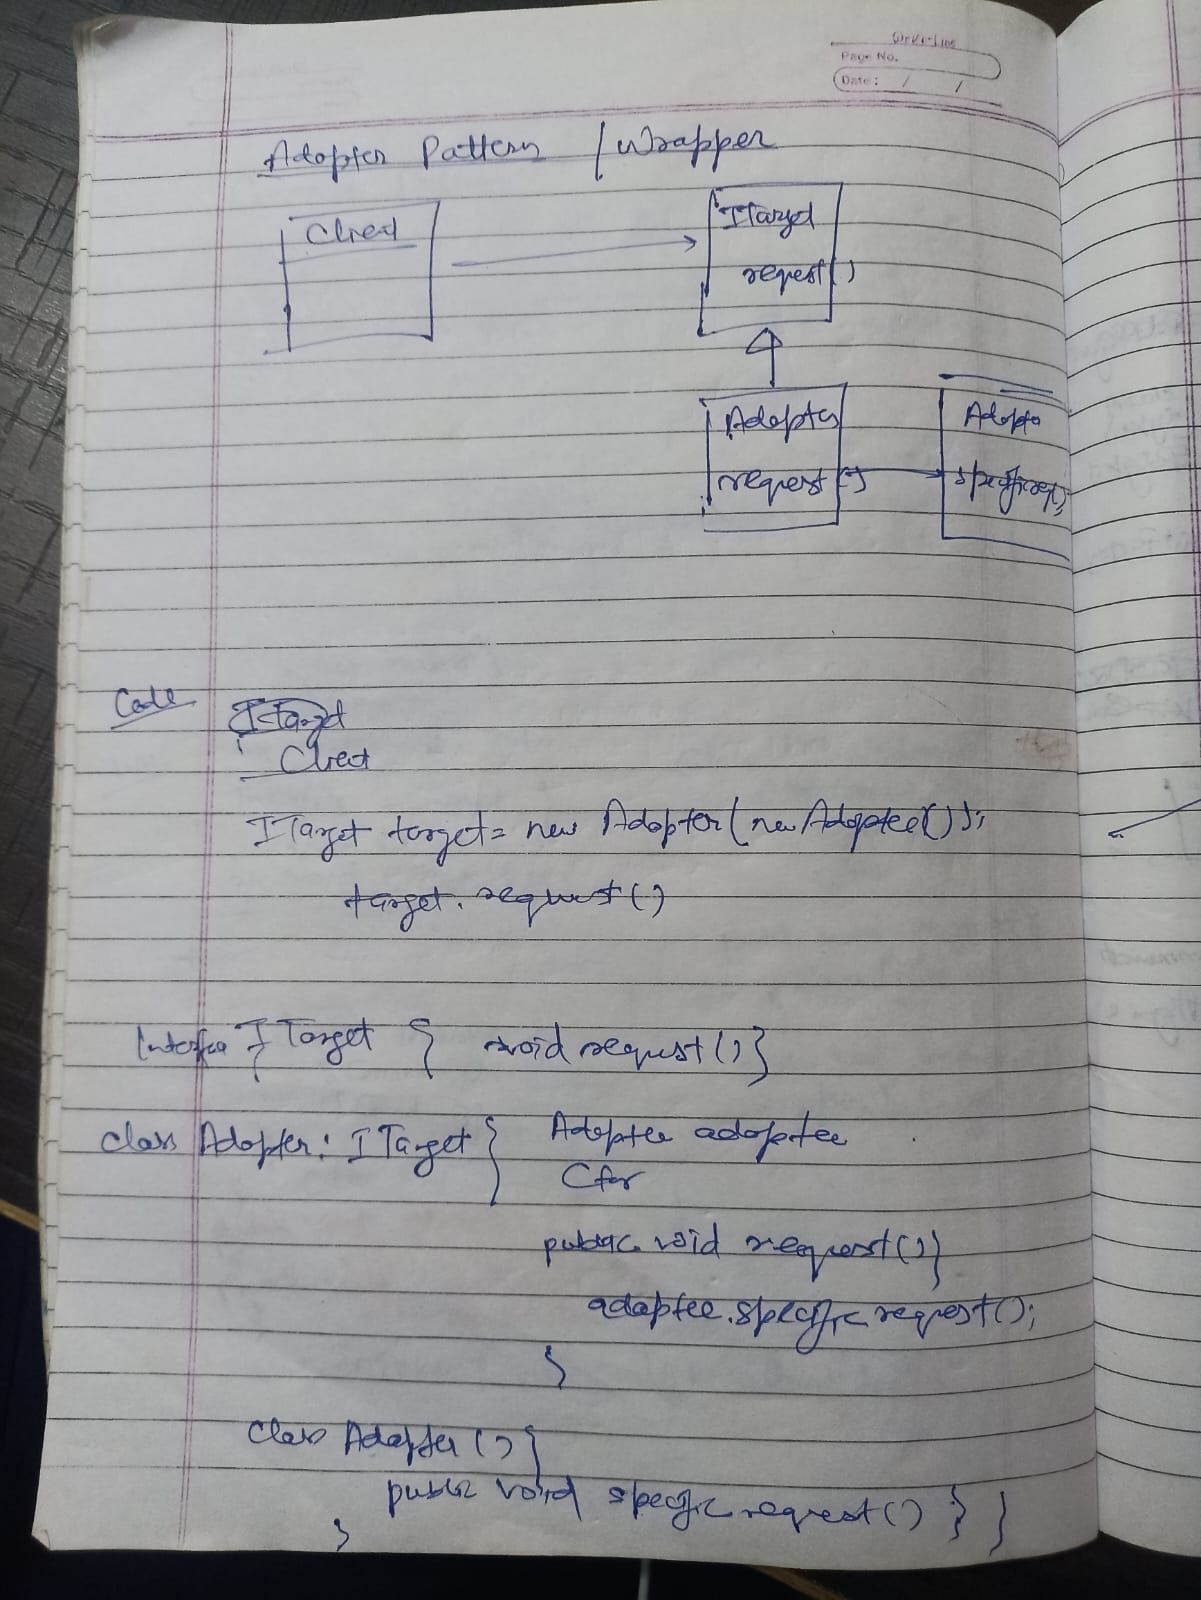 Page No.
Date: / /
Adopter Pattern / Wrapper
Client
ITarget
request()
Adopter
request()
Adopte
specificreq();
Code
ITarget
Client
ITarget target = new Adopter(new Adoptee());
target.request()
Interface ITarget { void request() }
class Adopter: ITarget { Adoptee adoptee
Ctor
public void request(){
adaptee.specific request();
}
Class Adapter() {
public void specific request() } }
}